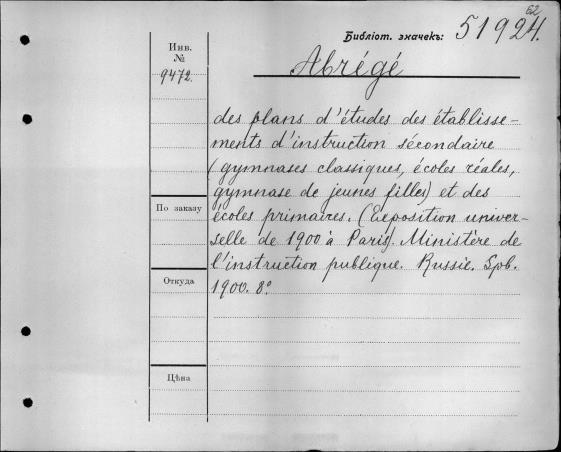 62
Библіот. значекъ: 51924.
Инв.
№
9472.
Abrégé
des plans d'études des établisse-
ments d'instruction sécondaire
(gymnases classiques, écoles réales,
gymnase de jeunes filles) et des
écoles primaires. (Exposition univer-
selle de 1900 à Paris). Ministère de
l'instruction publique. Russie. Spb.
1900. 8º
По заказу
Откуда
Цѣна